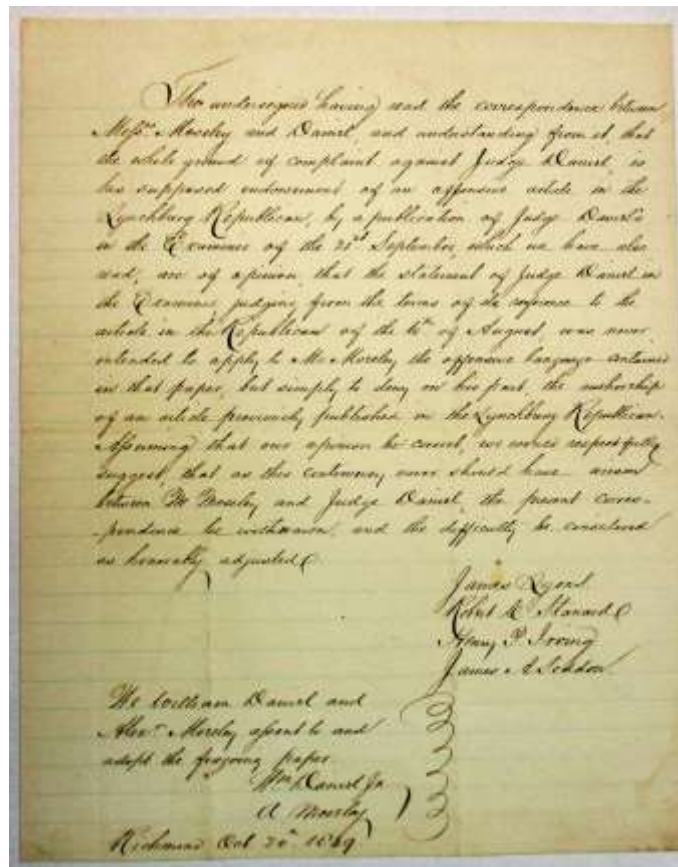 The undersigned having read the correspondence between
Messrs. Moseley and Daniel, and understanding from it, that
the whole ground of complaint against Judge Daniel is
his supposed endorsement of an offensive article in the
Lynchburg Republican, by a publication of Judge Daniel's
in the Examiner of the 21st September, which we have also
read, are of opinion that the statement of Judge Daniel in
the Examiner, judging from the terms of its reference to the
article in the Republican of the of August, was never
intended to apply to Mr Moseley the offensive language contained
in that paper, but simply to deny on his part the authorship
of an article previously published in the Lynchburg Republican.
Assuming that our opinion be correct, we would respectfully
suggest, that as this controversy never should have arisen
between Mr Moseley and Judge Daniel, the present corres-
-pondence be withdrawn, and the difficulty be considered
as honorably adjusted.
James Lyons
Robert Stanard
Henry P. Irving
James A Seddon
We William Daniel and
Alexr. Moseley assent to and
adopt the foregoing paper
Wm Daniel Jr
A Moseley
Richmond Oct 20th 1849